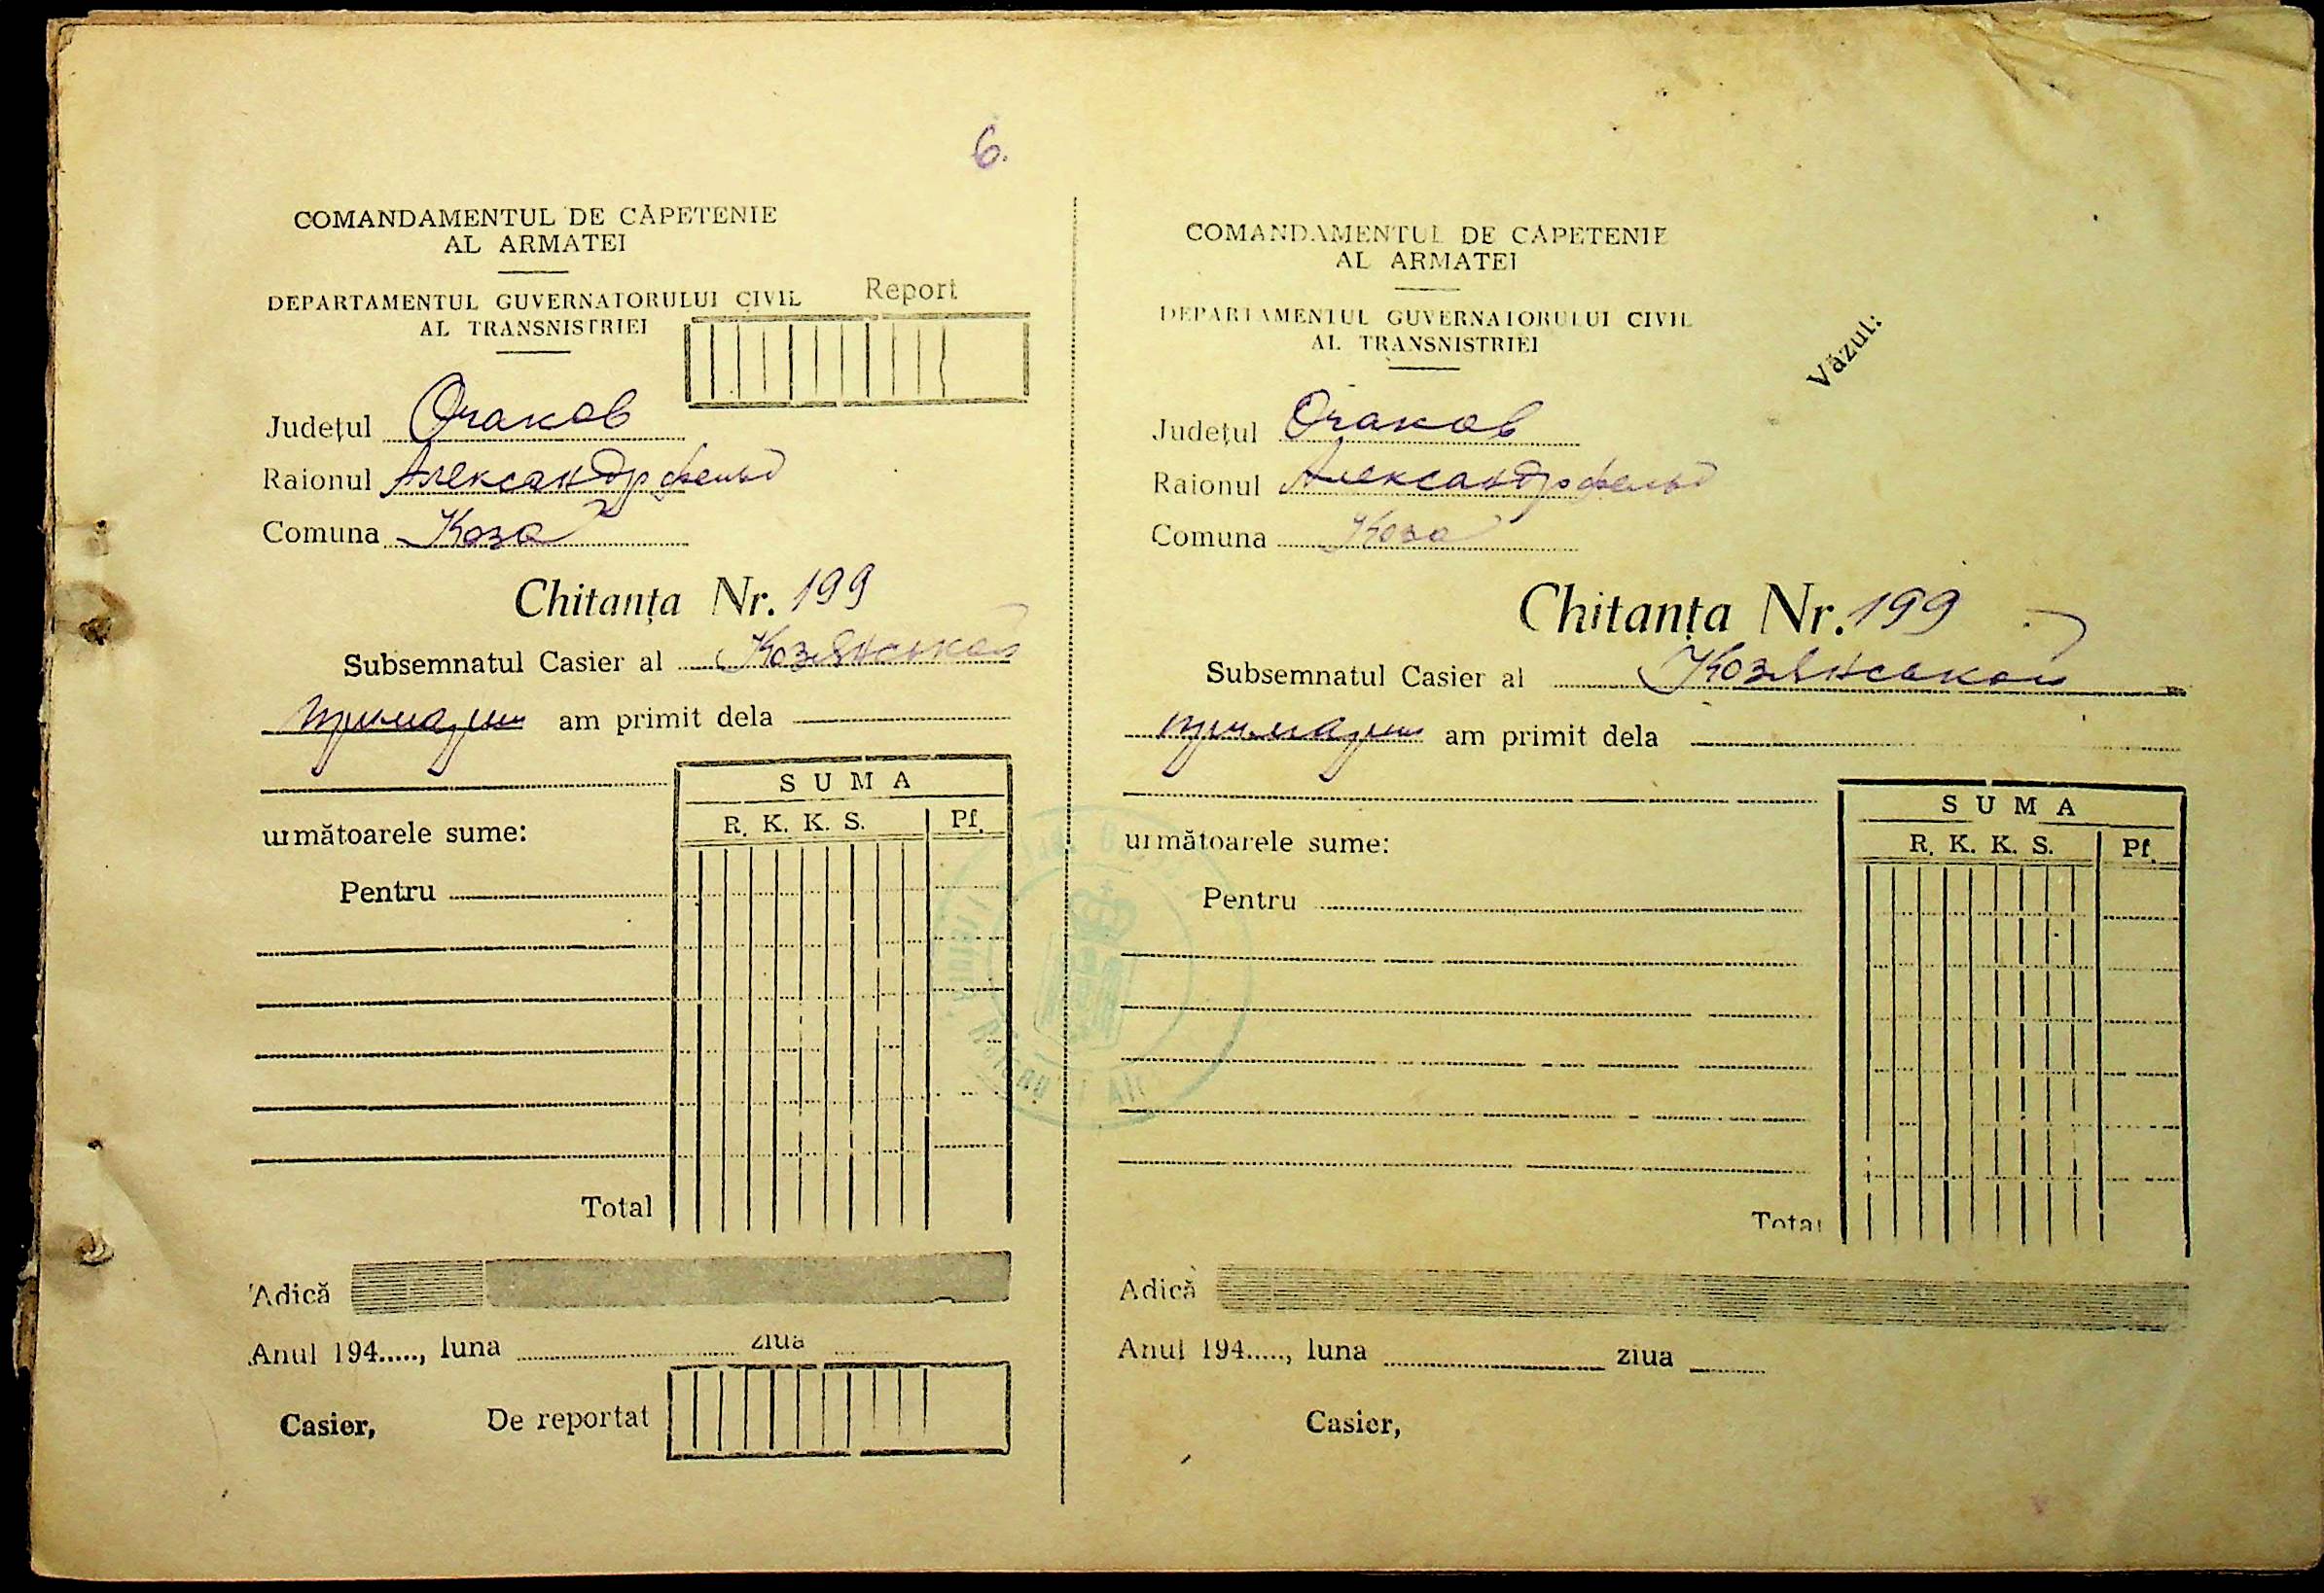 6.
COMANDAMENTUL DE CĂPETENIE
AL ARMATEI
DEPARTAMENTUL GUVERNATORULUI CIVIL
AL TRANSNISTRIEI
Report
Județul Очаков
Raionul Александрфельд
Comuna Коза
Chitanța Nr. 199
Subsemnatul Casier al Козянської
примарии am primit dela
următoarele sume:
SUMA
R. K. K. S. Pf.
Pentru
Total
Adică
Anul 194....., luna ziua
Casier, De reportat
COMANDAMENTUL DE CĂPETENIE
AL ARMATEI
DEPARTAMENTUL GUVERNATORULUI CIVIL
AL TRANSNISTRIEI
Văzut:
Județul Очаков
Raionul Александрфельд
Comuna Коза
Chitanța Nr. 199
Subsemnatul Casier al Козянської
примарии am primit dela
următoarele sume:
SUMA
R. K. K. S. Pf.
Pentru
Total
Adică
Anul 194....., luna ziua
Casier,